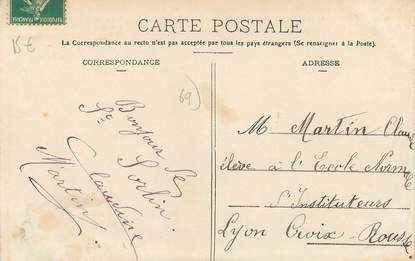 CARTE POSTALE
La Correspondance au recto n'est pas acceptée par tous les pays étrangers (Se renseigner à la Poste).
CORRESPONDANCE
ADRESSE
15€
69)
Bonjour de
St Sorlin.
Claudine
Martin
M Martin Claude
élève à l'Ecole Norm
d'Instituteurs
Lyon Croix-Rousse